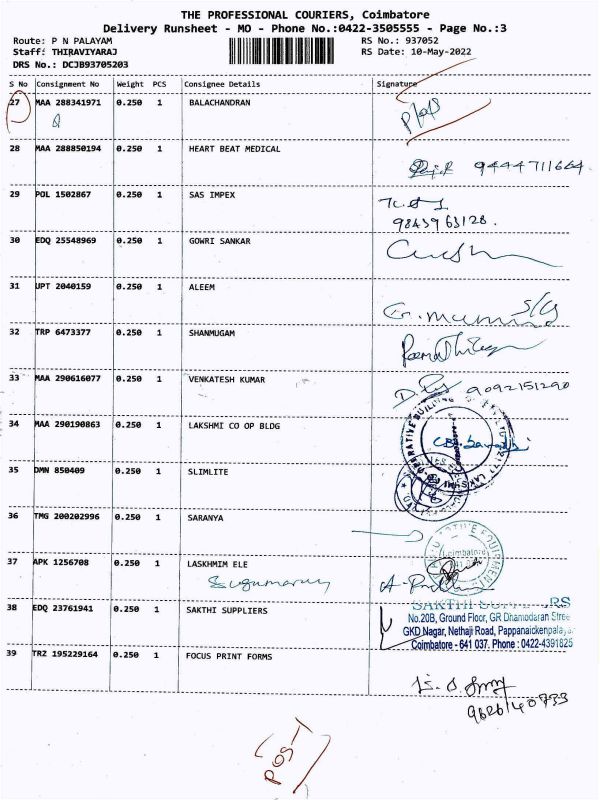 THE PROFESSIONAL COURIERS, Coimbatore
Delivery Runsheet - MO - Phone No.:0422-3505555 - Page No.:3
Route: P N PALAYAM RS No.: 937052
Staff: THIRAVIYARAJ RS Date: 10-May-2022
DRS No.: DCJB93705203
S No Consignment No Weight PCS Consignee Details Signature
27 MAA 288341971 0.250 1 BALACHANDRAN
28 MAA 288850194 0.250 1 HEART BEAT MEDICAL
9444711664
29 POL 1502867 0.250 1 SAS IMPEX
9843963128.
30 EDQ 25548969 0.250 1 GOWRI SANKAR
31 UPT 2040159 0.250 1 ALEEM
32 TRP 6473377 0.250 1 SHANMUGAM
33 MAA 290616077 0.250 1 VENKATESH KUMAR
9092151290
34 MAA 290190863 0.250 1 LAKSHMI CO OP BLDG
35 DMN 850409 0.250 1 SLIMLITE
36 TMG 200202996 0.250 1 SARANYA
Coimbatore
37 APK 1256708 0.250 1 LASKHMIM ELE
Sugumaran
38 EDQ 23761941 0.250 1 SAKTHI SUPPLIERS
SAKTHI SUPPLIERS
No.20B, Ground Floor, GR Dhamodaran Stree
GKD Nagar, Nethaji Road, Pappanaickenpalaya
Coimbatore - 641 037. Phone : 0422-4391825
39 TRZ 195229164 0.250 1 FOCUS PRINT FORMS
9626140733
POST